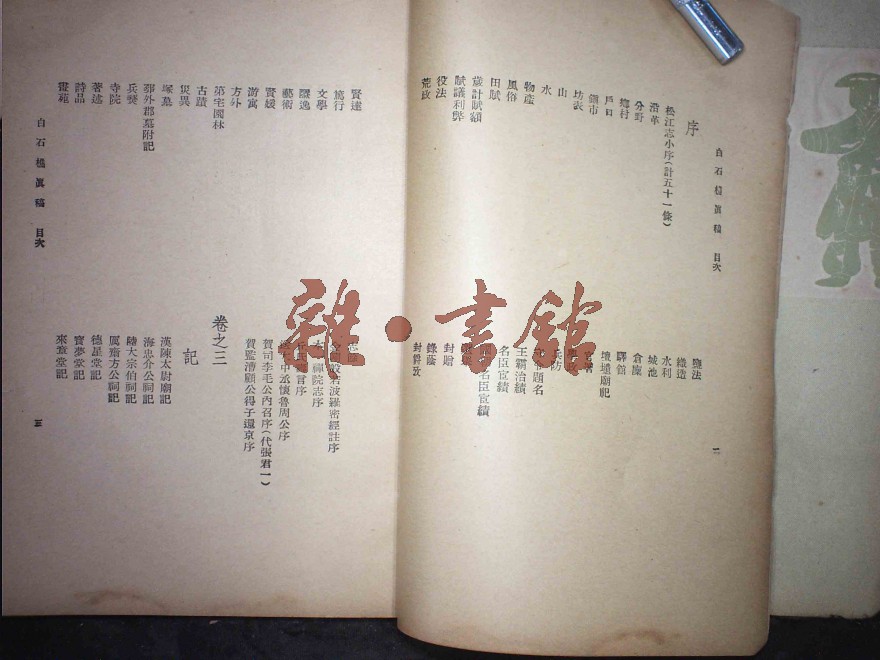 白石樵眞稿 目次
二
序
松江志小序(計五十一條)
沿革
分野
鄉村
戶口
鎭市
坊表
山
水
物產
風俗
田賦
歲計賦額
賦議利弊
役法
荒政
鹽法
織造
水利
城池
倉廩
驛館
壇壝廟祀
兵防
題名
王霸治績
名臣宦績
名臣宦績
封贈
錄蔭
封爵攷
賢達
篤行
文學
隱逸
藝術
賢媛
游寓
方外
第宅園林
古蹟
災異
塚墓
郭外郡墓附記
兵燹
寺院
著述
詩品
畫苑
般若波羅密經註序
禪院志序
言序
中丞懷魯周公序
賀司李毛公內召序(代張君一)
賀監濟顧公得子還京序
卷之三
記
漢陳太尉廟記
海忠介公祠記
陸大宗伯祠記
厲齋方公祠記
德星堂記
寶夢堂記
來章堂記
白石樵眞稿 目次
三
雜·書館